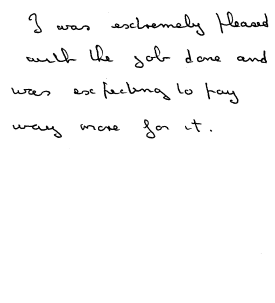 I was extremely pleased
with the job done and
was expecting to pay
way more for it.